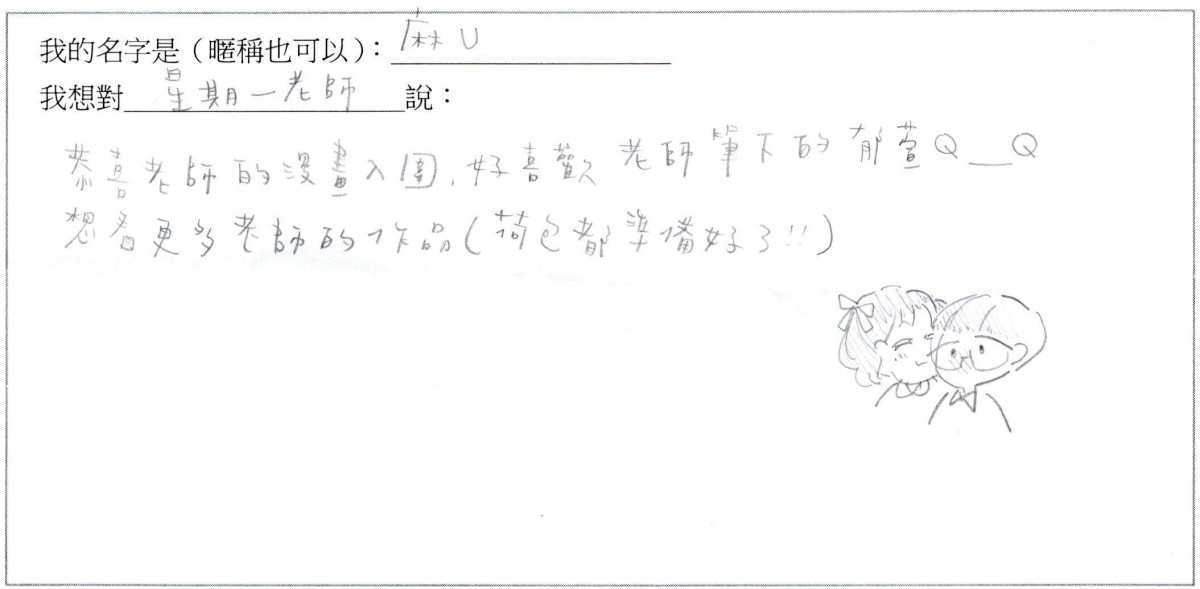 我的名字是（暱稱也可以）：麻U
我想對星期一老師說：
恭喜老師的漫畫入圍，好喜歡老師筆下的郁萱Q__Q
想看更多老師的作品(荷包都準備好了!!)